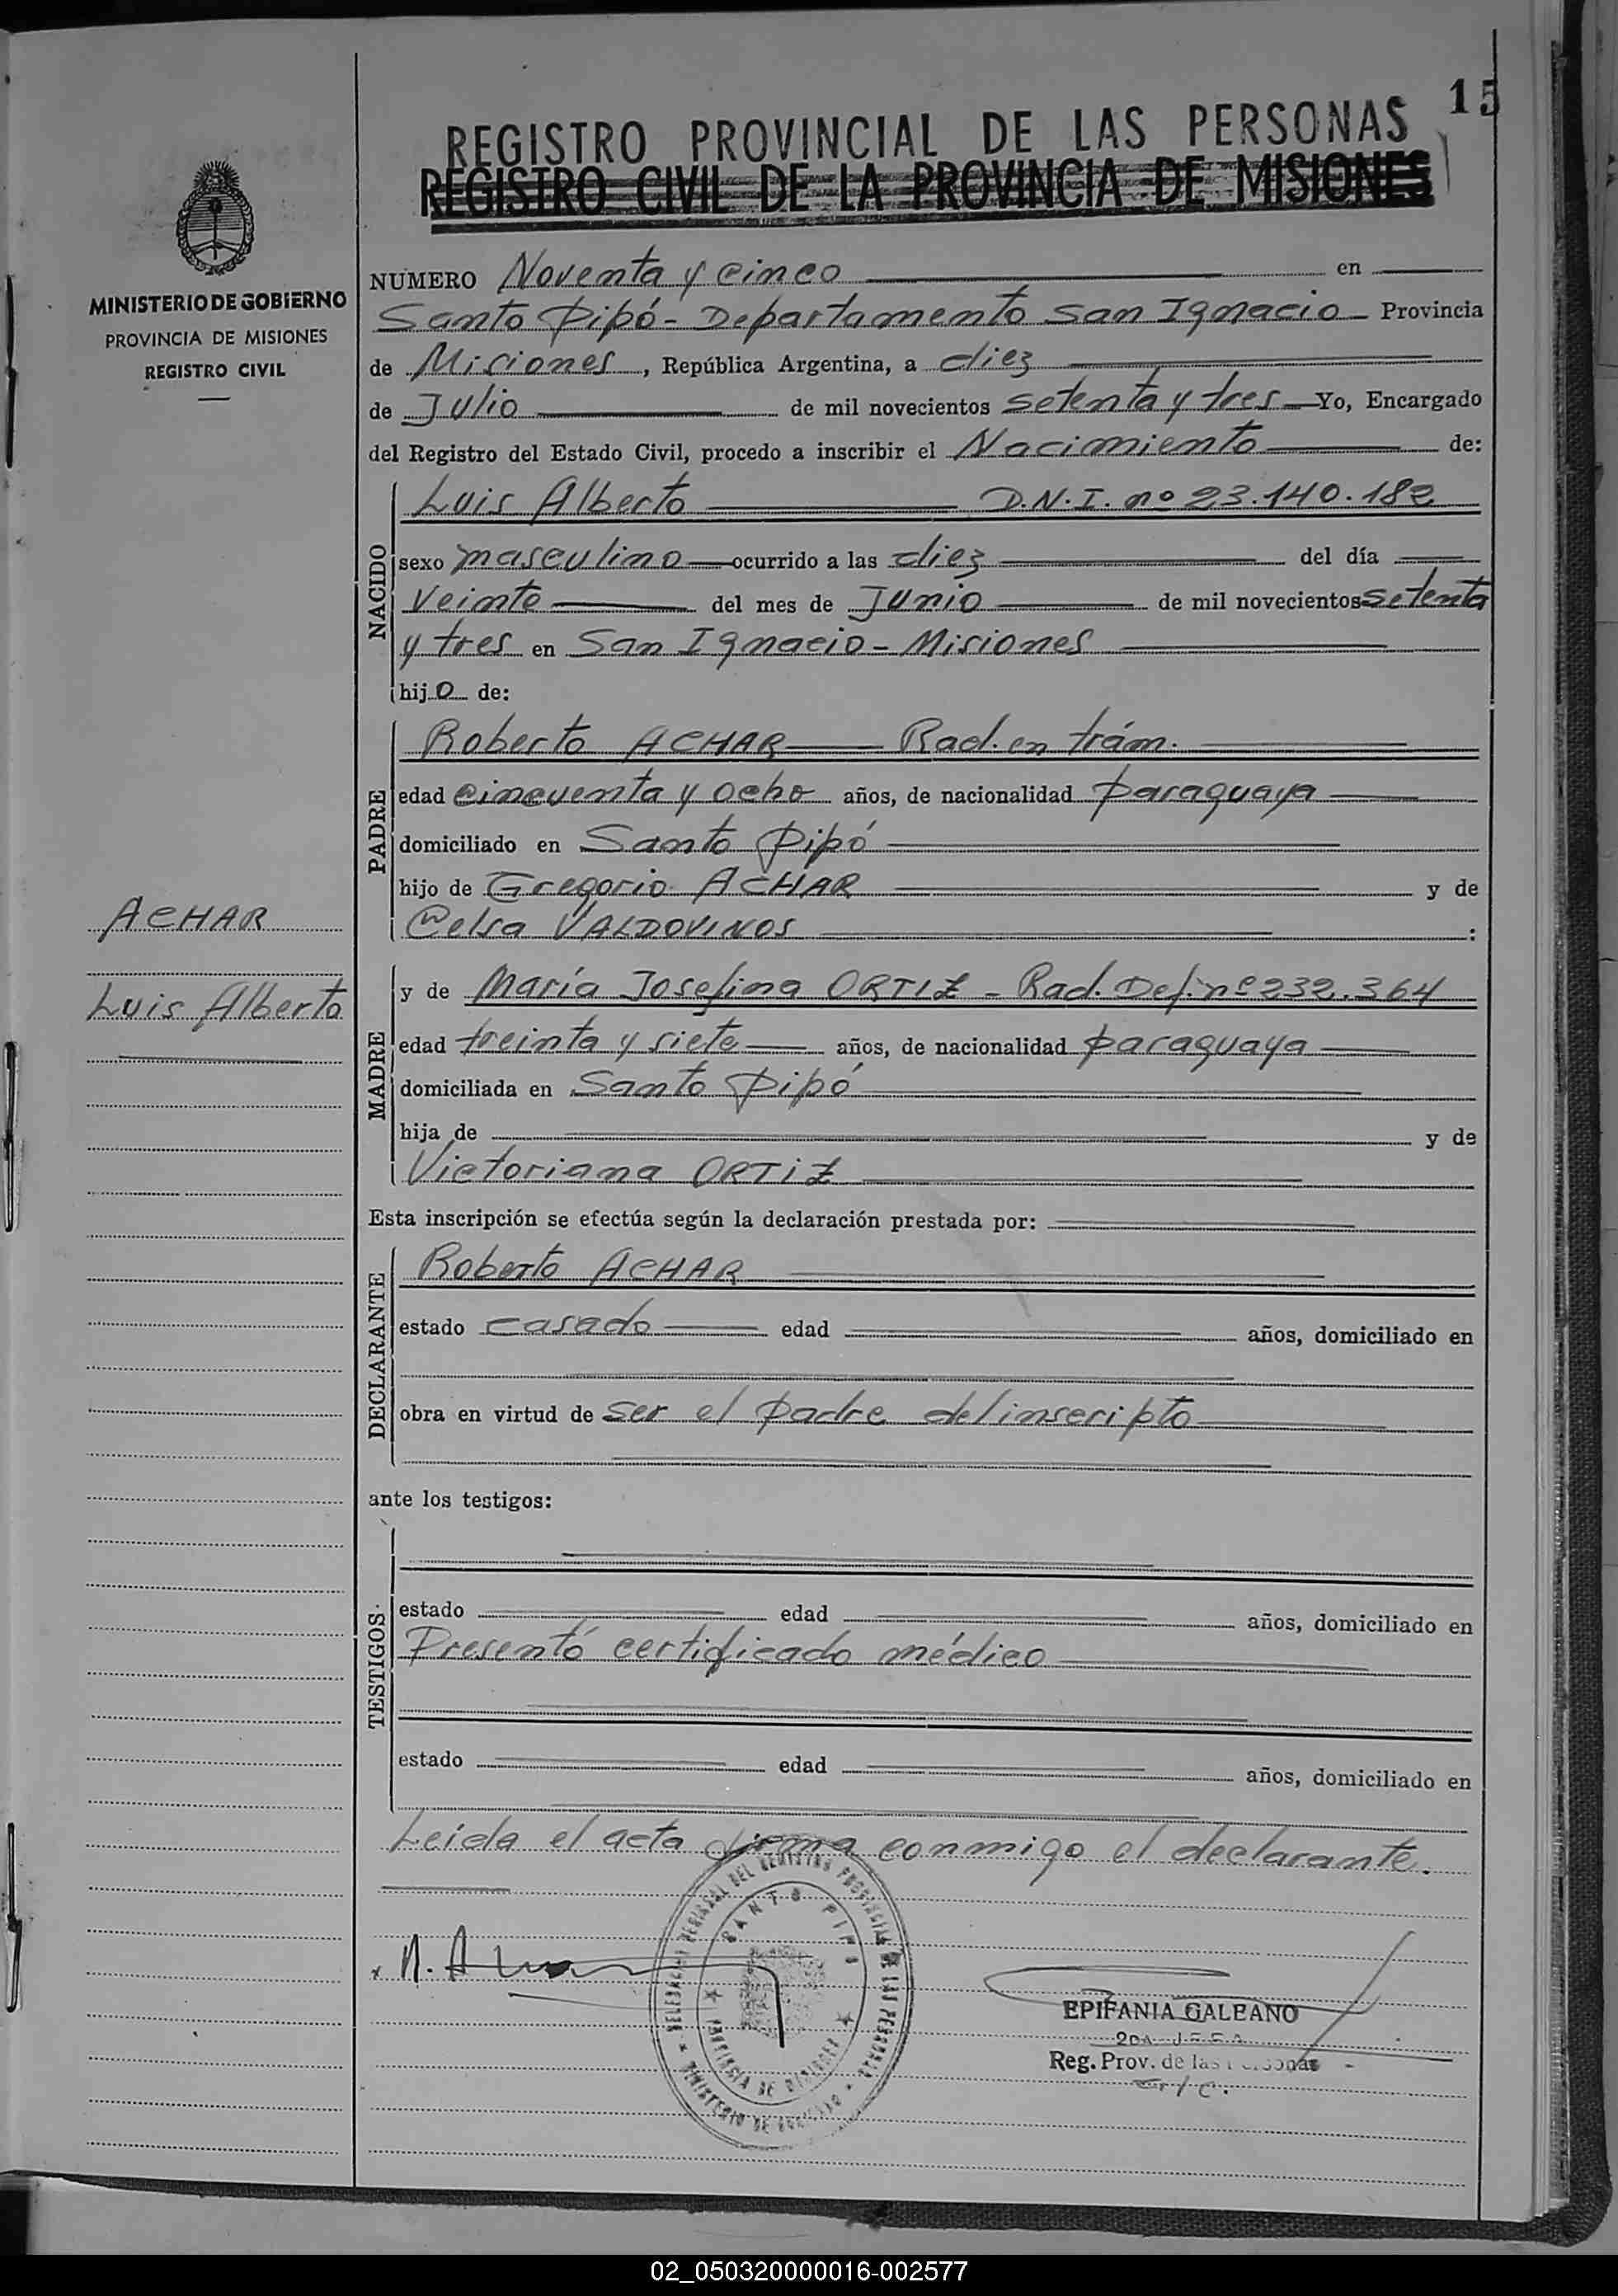 15
REGISTRO PROVINCIAL DE LAS PERSONAS
REGISTRO CIVIL DE LA PROVINCIA DE MISIONES
MINISTERIO DE GOBIERNO
PROVINCIA DE MISIONES
REGISTRO CIVIL
NUMERO Noventa y cinco en
Santo Pipó - Departamento San Ignacio - Provincia
de Misiones, República Argentina, a diez
de Julio de mil novecientos setenta y tres Yo, Encargado
del Registro del Estado Civil, procedo a inscribir el Nacimiento de:
NACIDO
Luis Alberto D.N.I. nº 23.140.182
sexo masculino ocurrido a las diez del día
Veinte del mes de Junio de mil novecientos setenta
y tres en San Ignacio - Misiones
hijo de:
PADRE
Roberto ACHAR Rad. en trám.
edad cincuenta y ocho años, de nacionalidad paraguaya
domiciliado en Santo Pipó
hijo de Gregorio ACHAR y de
Celsa VALDOVINOS :
ACHAR
Luis Alberto
MADRE
y de María Josefina ORTIZ - Rad. Def. nº 232.364
edad treinta y siete años, de nacionalidad paraguaya
domiciliada en Santo Pipó
hija de y de
Victoriana ORTIZ
Esta inscripción se efectúa según la declaración prestada por:
DECLARANTE
Roberto ACHAR
estado casado edad años, domiciliado en
obra en virtud de ser el padre del inscripto
ante los testigos:
TESTIGOS
estado edad años, domiciliado en
Presentó certificado médico
estado edad años, domiciliado en
Leida el acta firma conmigo el declarante.
DELEGACION REGIONAL DEL REGISTRO PROVINCIAL DE LAS PERSONAS
SANTO PIPO
PROVINCIA DE MISIONES
MINISTERIO DE GOBIERNO
EPIFANIA GALEANO
2DA JEFA
Reg. Prov. de las Personas
02_050320000016-002577